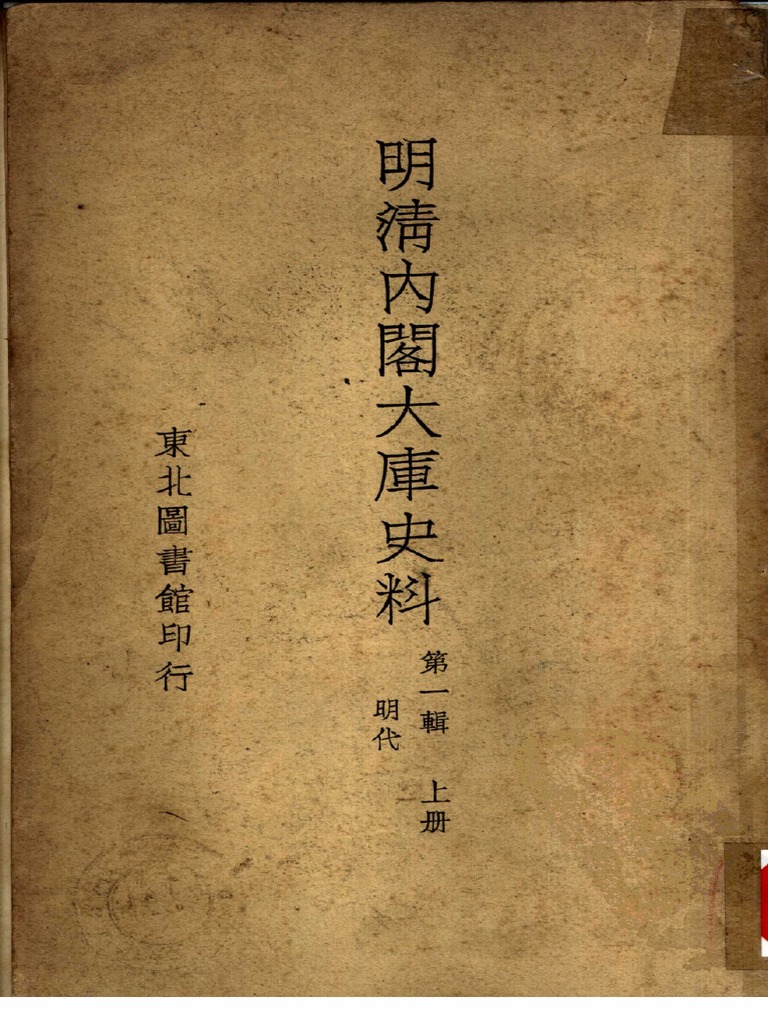 明淸內閣大庫史料
第一輯 上册
明代
東北圖書館印行